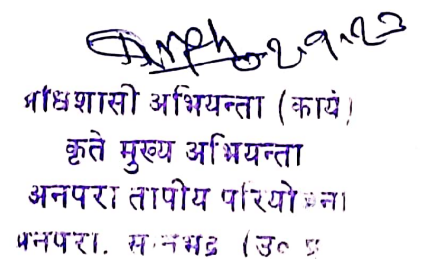 2.9.23
अधिशासी अभियन्ता (कार्य)
कृते मुख्य अभियन्ता
अनपरा तापीय परियोजना
अनपरा. सोनभद्र (उ० प्र